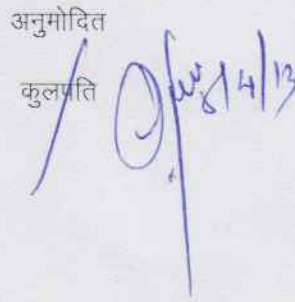 अनुमोदित
कुलपति
8/4/13